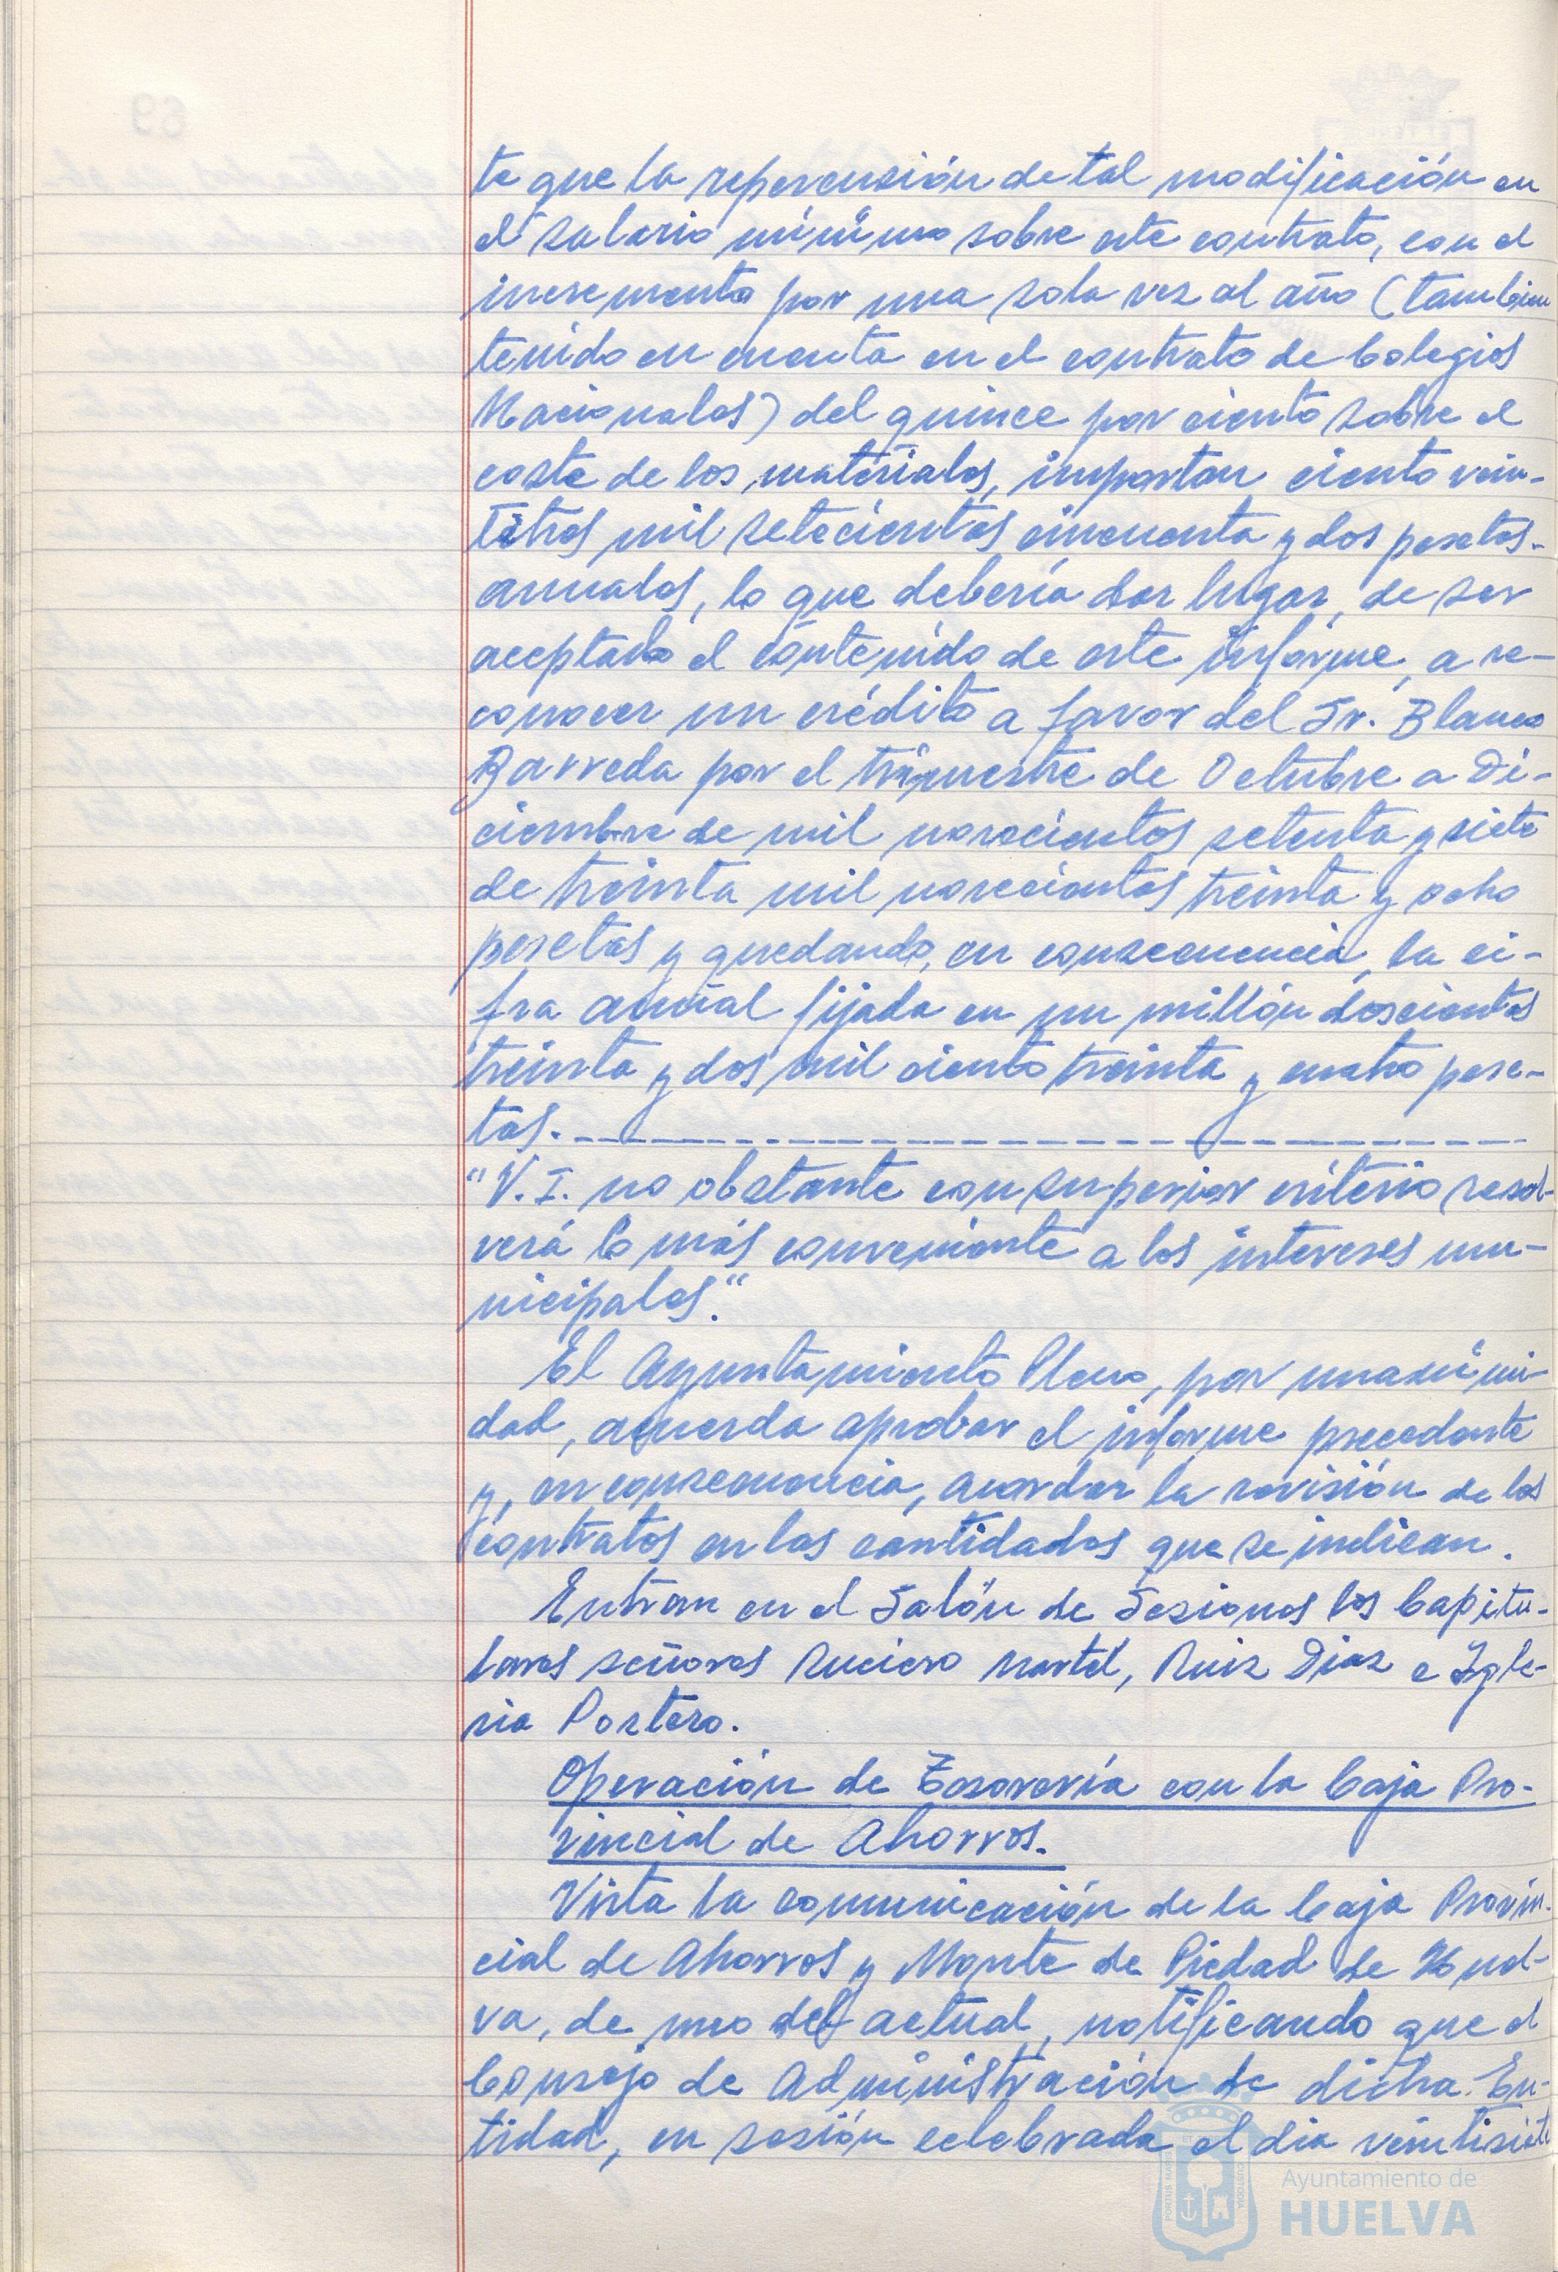 te que la repercusión de tal modificación en
el salario mínimo sobre este contrato, con el
incremento por una sola vez al año (también
tenido en cuenta en el contrato de Colegios
Nacionales) del quince por ciento sobre el
coste de los materiales, importan ciento vein-
titres mil setecientas cincuenta y dos pesetas
anuales, lo que debería dar lugar, de ser
aceptado el contenido de este informe, a re-
conocer un crédito a favor del Sr. Blanco
Barreda por el trimestre de Octubre a Di-
ciembre de mil novecientos setenta y siete
de treinta mil novecientas treinta y ocho
pesetas y quedando, en consecuencia, la ci-
fra anual fijada en un millón doscientas
treinta y dos mil ciento treinta y cuatro pese-
tas.
"V.I. no obstante con superior criterio resol-
verá lo más conveniente a los intereses mu-
nicipales."
El Ayuntamiento Pleno, por unanimi-
dad, acuerda aprobar el informe precedente
y, en consecuencia, acordar la revisión de los
contratos en las cantidades que se indican.
Entran en el Salón de Sesiones los Capitu-
lares señores Ruciero Martel, Ruiz Diaz e Igle-
sia Postero.
Operación de Tesorería con la Caja Pro-
vincial de Ahorros.
Vista la comunicación de la Caja Provin-
cial de Ahorros y Monte de Piedad de Huel-
va, de uno del actual, notificando que el
Consejo de Administración de dicha En-
tidad, en sesión celebrada el dia veintisiete
Ayuntamiento de
HUELVA